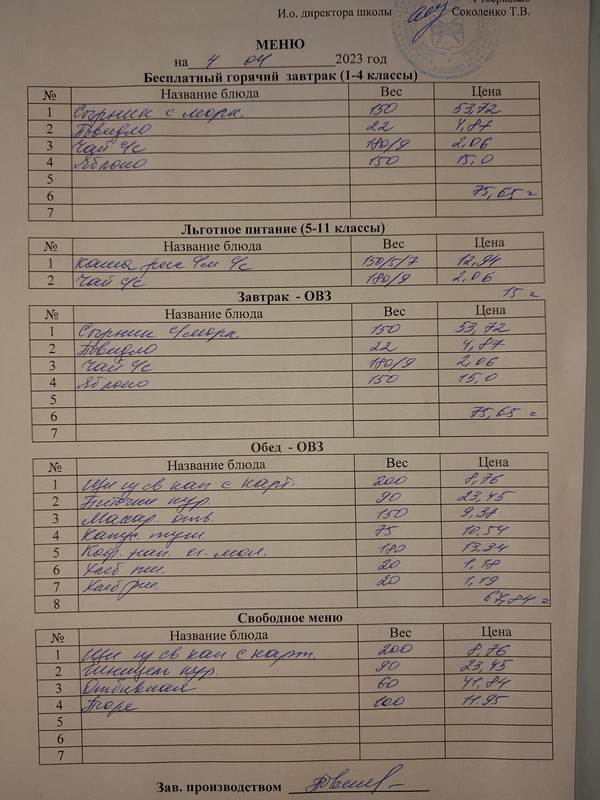 И.о. директора школы Соколенко Т.В.
МЕНЮ
на 4 04 2023 год
Бесплатный горячий завтрак (1-4 классы)
№ Название блюда Вес Цена
1 Сырник с морк. 150 53,72
2 Повидло 22 4,87
3 Чай с/с 180/9 2,06
4 Яблоко 150 15,0
5
6 75,65 =
7
Льготное питание (5-11 классы)
№ Название блюда Вес Цена
1 каша рис с/м с/с 150/5/7 12,94
2 Чай с/с 180/9 2,06
15 =
Завтрак - ОВЗ
№ Название блюда Вес Цена
1 Сырник с/морк. 150 53,72
2 Повидло 22 4,87
3 Чай с/с 180/9 2,06
4 Яблоко 150 15,0
5
6 75,65 =
7
Обед - ОВЗ
№ Название блюда Вес Цена
1 Щи из св кап с карт. 200 8,76
2 кур. 90 23,45
3 Макар. отв. 150 9,38
4 Капус. туш. 75 10,54
5 Коф. нап. сг. мол. 180 13,34
6 Хлеб пш. 20 1,18
7 Хлеб рж. 20 1,19
8 67,84 =
Свободное меню
№ Название блюда Вес Цена
1 Щи из св кап с карт. 200 8,76
2 Шницель кур. 90 23,45
3 Отбивная 60 41,84
4 Пюре 100 11.95
5
6
7
Зав. производством